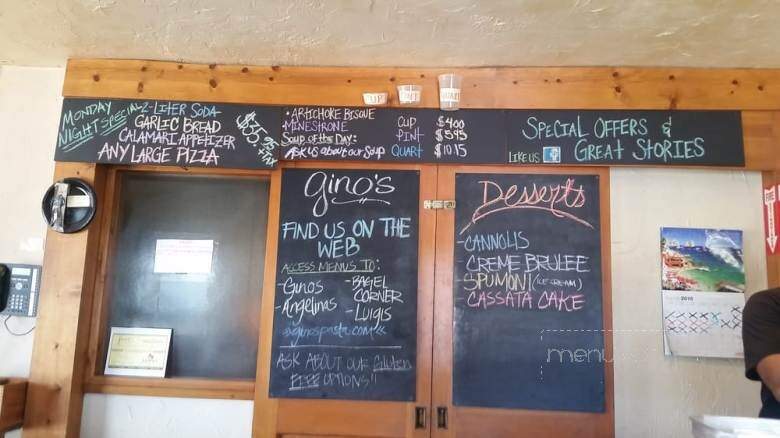 MONDAY
NIGHT SPECIAL
2-LITER SODA
GARLIC BREAD
CALAMARI APPETIZER
ANY LARGE PIZZA
+TAX
• ARTICHOKE BISQUE
• MINESTRONE
SOUP OF THE DAY:
ASK US ABOUT OUR SOUP
CUP $4.00
PINT $5.95
QUART $10.15
SPECIAL OFFERS &
GREAT STORIES
LIKE US
gino's
FIND US ON THE
WEB
ACCESS MENUS TO:
- Ginos
- Angelinas
- BAGEL
CORNER
- LUIGIS
ASK ABOUT OUR Gluten
FREE OPTIONS!!
Desserts
- CANNOLIS
- CREME BRULEE
- SPUMONI (ICE CREAM)
- CASSATA CAKE
menu